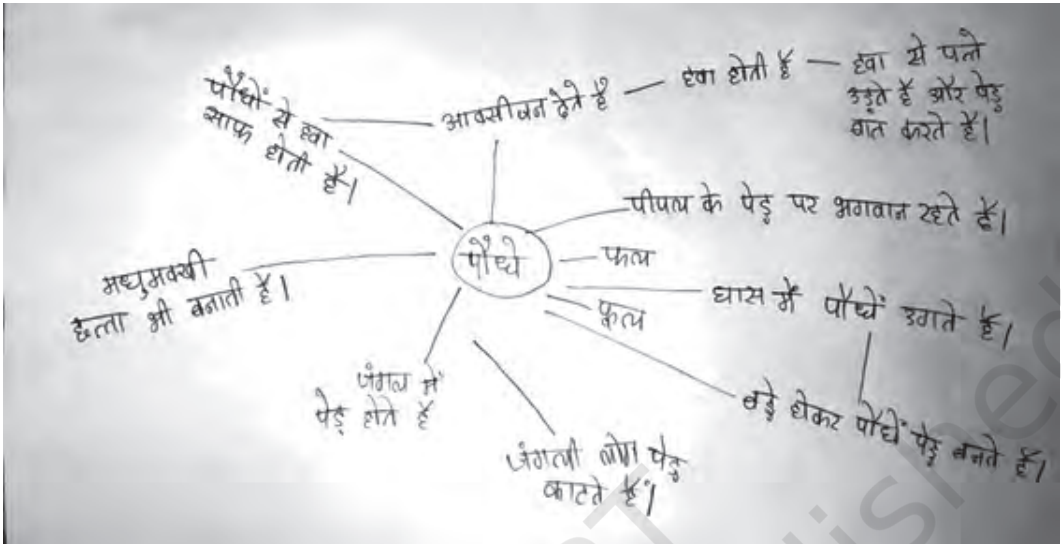 पौधों से हवा
साफ होती है।
आक्सीजन देते है
हवा होती है
हवा से पत्ते
उड़ते है और पेड़
बात करते है।
पीपल के पेड़ पर भगवान रहते हैं।
पौधे
फल
फूल
घास में पौधें उगते है।
बड़े होकर पौधें पेड़ बनते है।
मधुमक्खी
छत्ता भी बनाती है।
जंगल में
पेड़ होते है
जंगली लोग पेड़
काटते हैं।